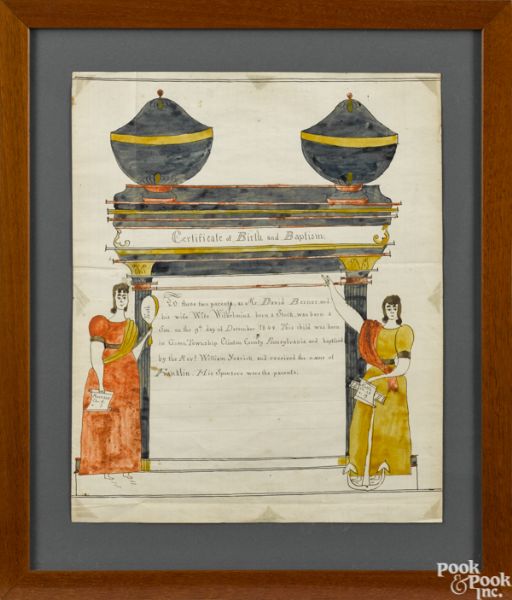 Certificate of Birth and Baptism.
To these two parents, as Mr. David Berner and
his wife Wilhelmina born a Stock, was born a
Son on the 9th day of December 1860. This child was born
in Township Clinton County Pennsylvania and baptised
by the Revd. William and received the name of
Franklin. His Sponsors were the parents.
Pook
& Pook
Inc.